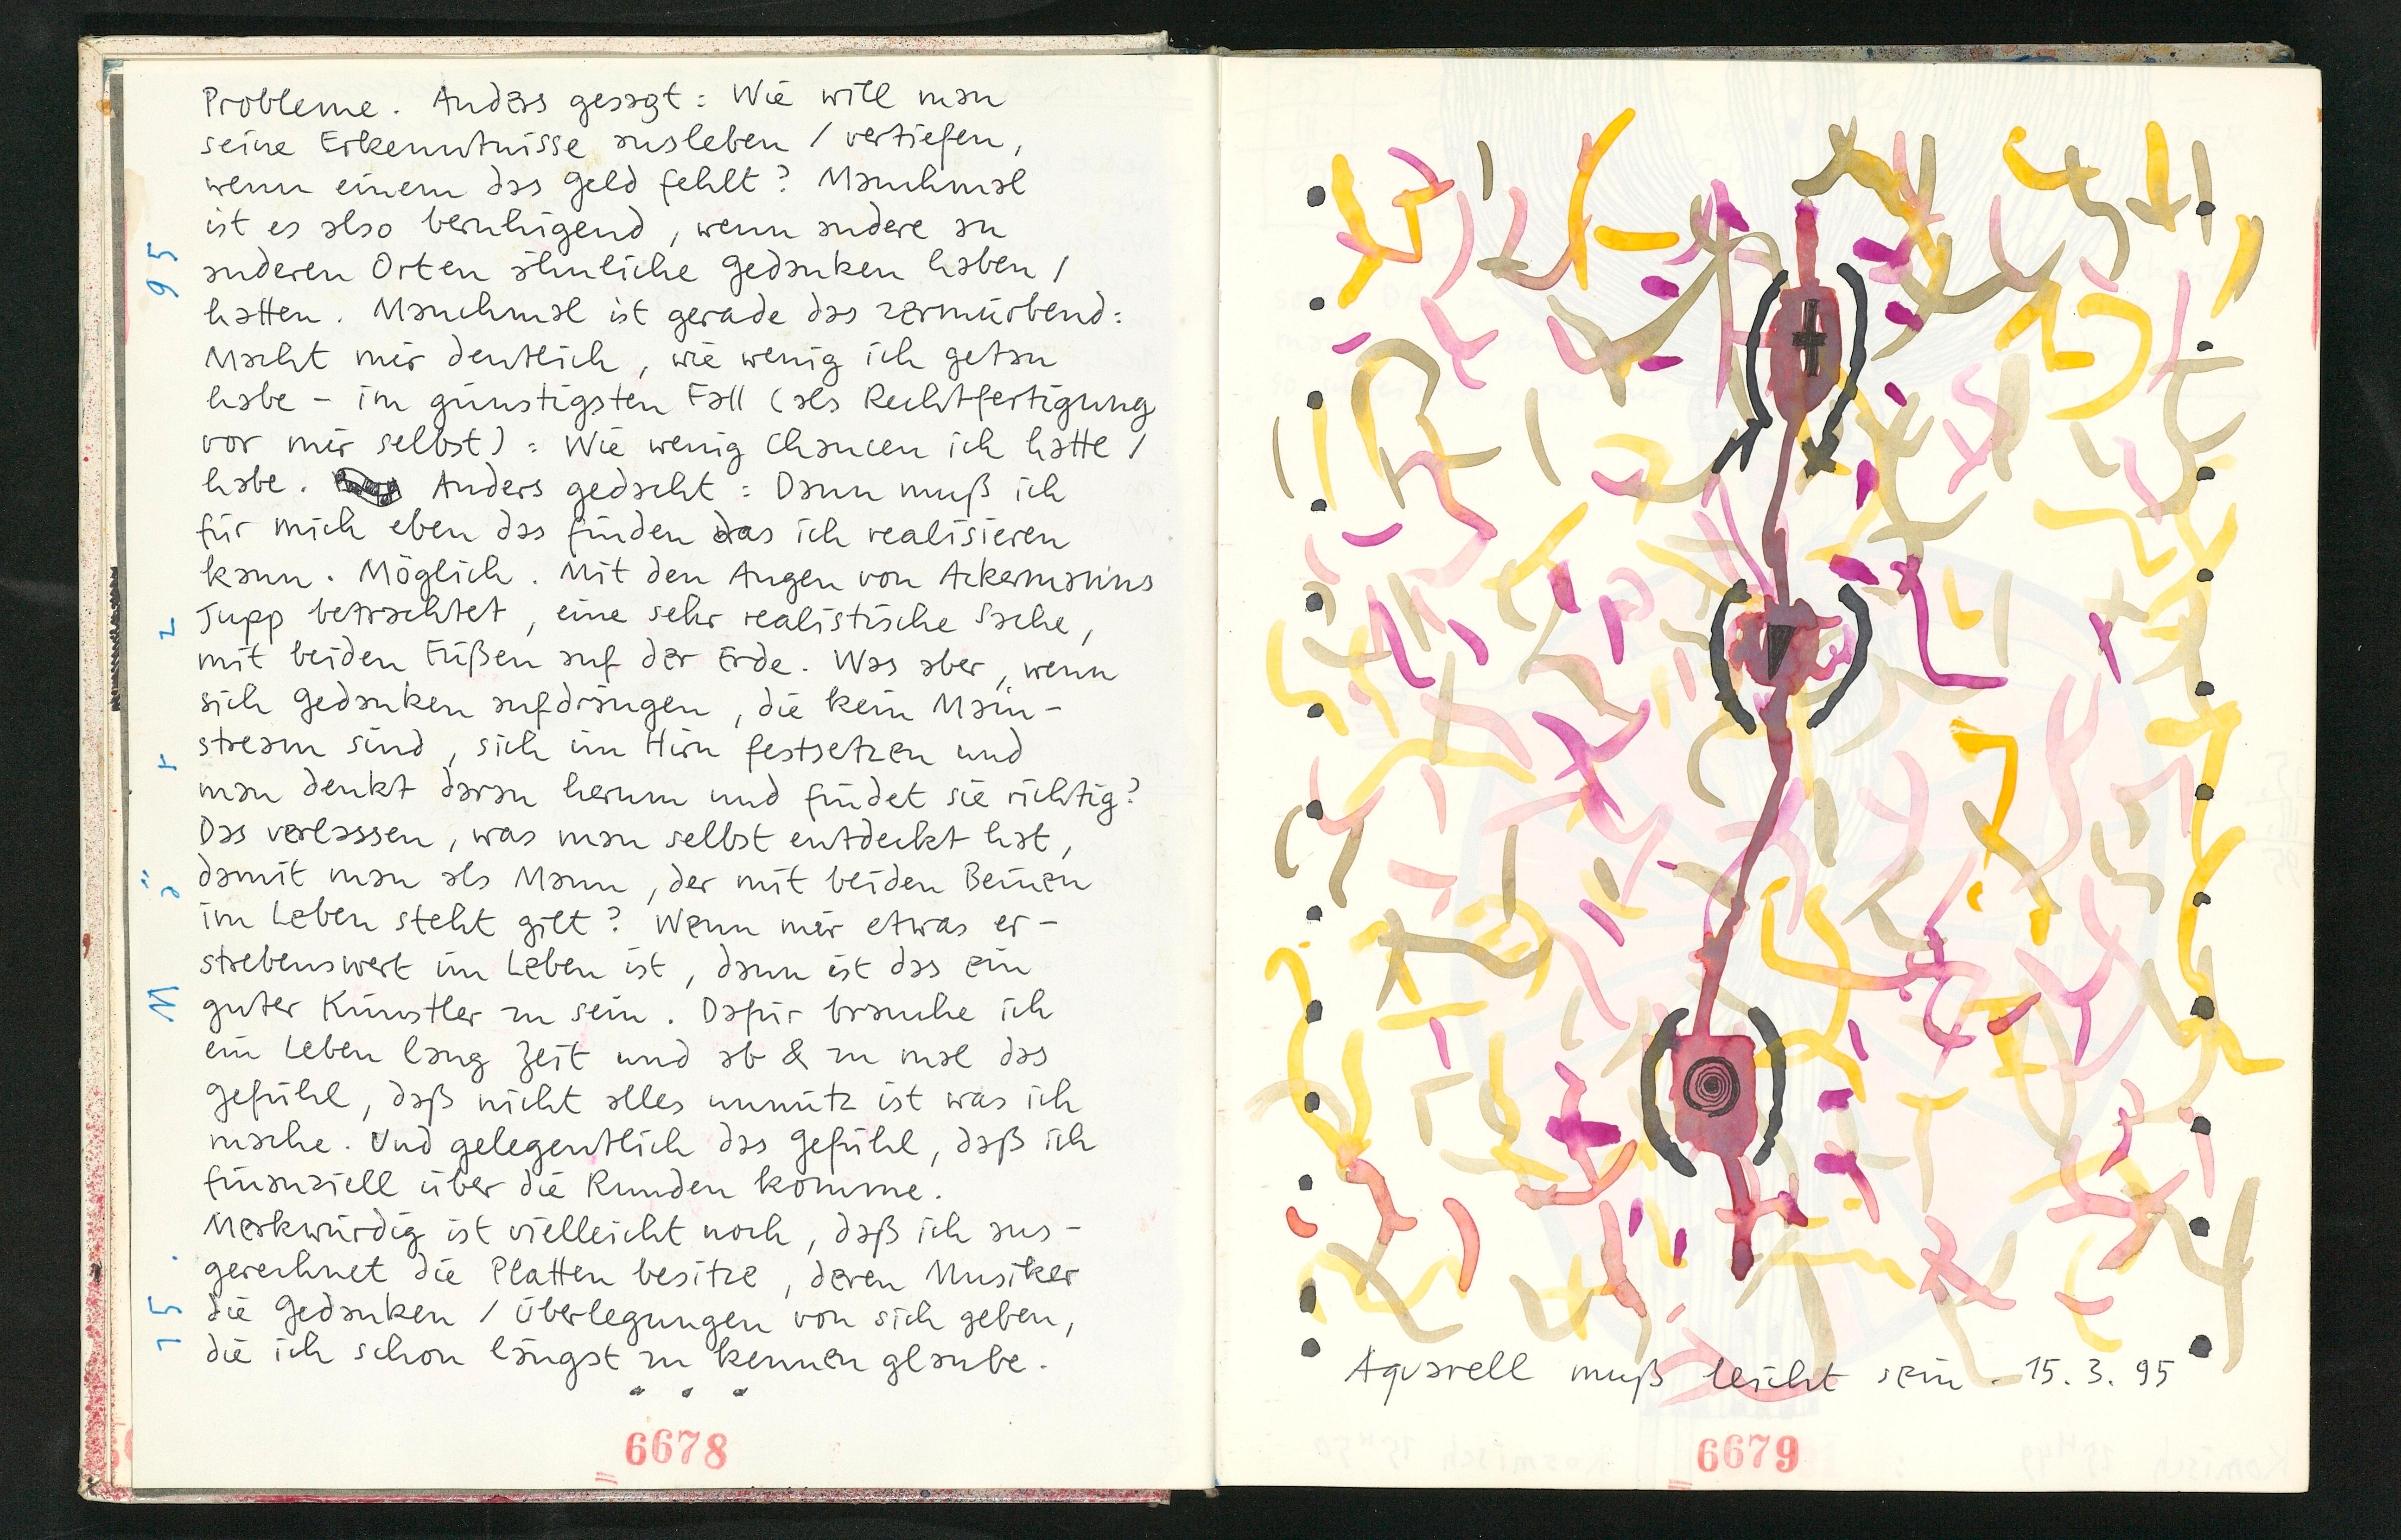 Probleme. Anders gesagt: Wie will man
seine Erkenntnisse ausleben / vertiefen,
wenn einem das Geld fehlt? Manchmal
ist es also beruhigend, wenn andere an
anderen Orten ähnliche Gedanken haben /
hatten. Manchmal ist gerade das zermürbend:
Macht mir deutlich, wie wenig ich getan
habe - im günstigsten Fall (als Rechtfertigung
vor mir selbst): Wie wenig Chancen ich hatte /
habe. Anders gedacht: Dann muß ich
für mich eben das finden das ich realisieren
kann. Möglich. Mit den Augen von Ackermanns
Jupp betrachtet, eine sehr realistische Sache,
mit beiden Füßen auf der Erde. Was aber, wenn
sich Gedanken aufdrängen, die kein Main-
stream sind, sich im Hirn festsetzen und
man denkt daran herum und findet sie richtig?
Das verlassen, was man selbst entdeckt hat,
damit man als Mann, der mit beiden Beinen
im Leben steht gilt? Wenn mir etwas er-
strebenswert im Leben ist, dann ist das ein
guter Künstler zu sein. Dafür brauche ich
ein Leben lang Zeit und ab & zu mal das
Gefühl, daß nicht alles unnütz ist was ich
mache. Und gelegentlich das Gefühl, daß ich
finanziell über die Runden komme.
Merkwürdig ist vielleicht noch, daß ich aus-
gerechnet die Platten besitze, deren Musiker
die Gedanken / Überlegungen von sich geben,
die ich schon längst zu kennen glaube.
15. März 95
6678
Aquarell muß leicht sein. 15.3.95
6679